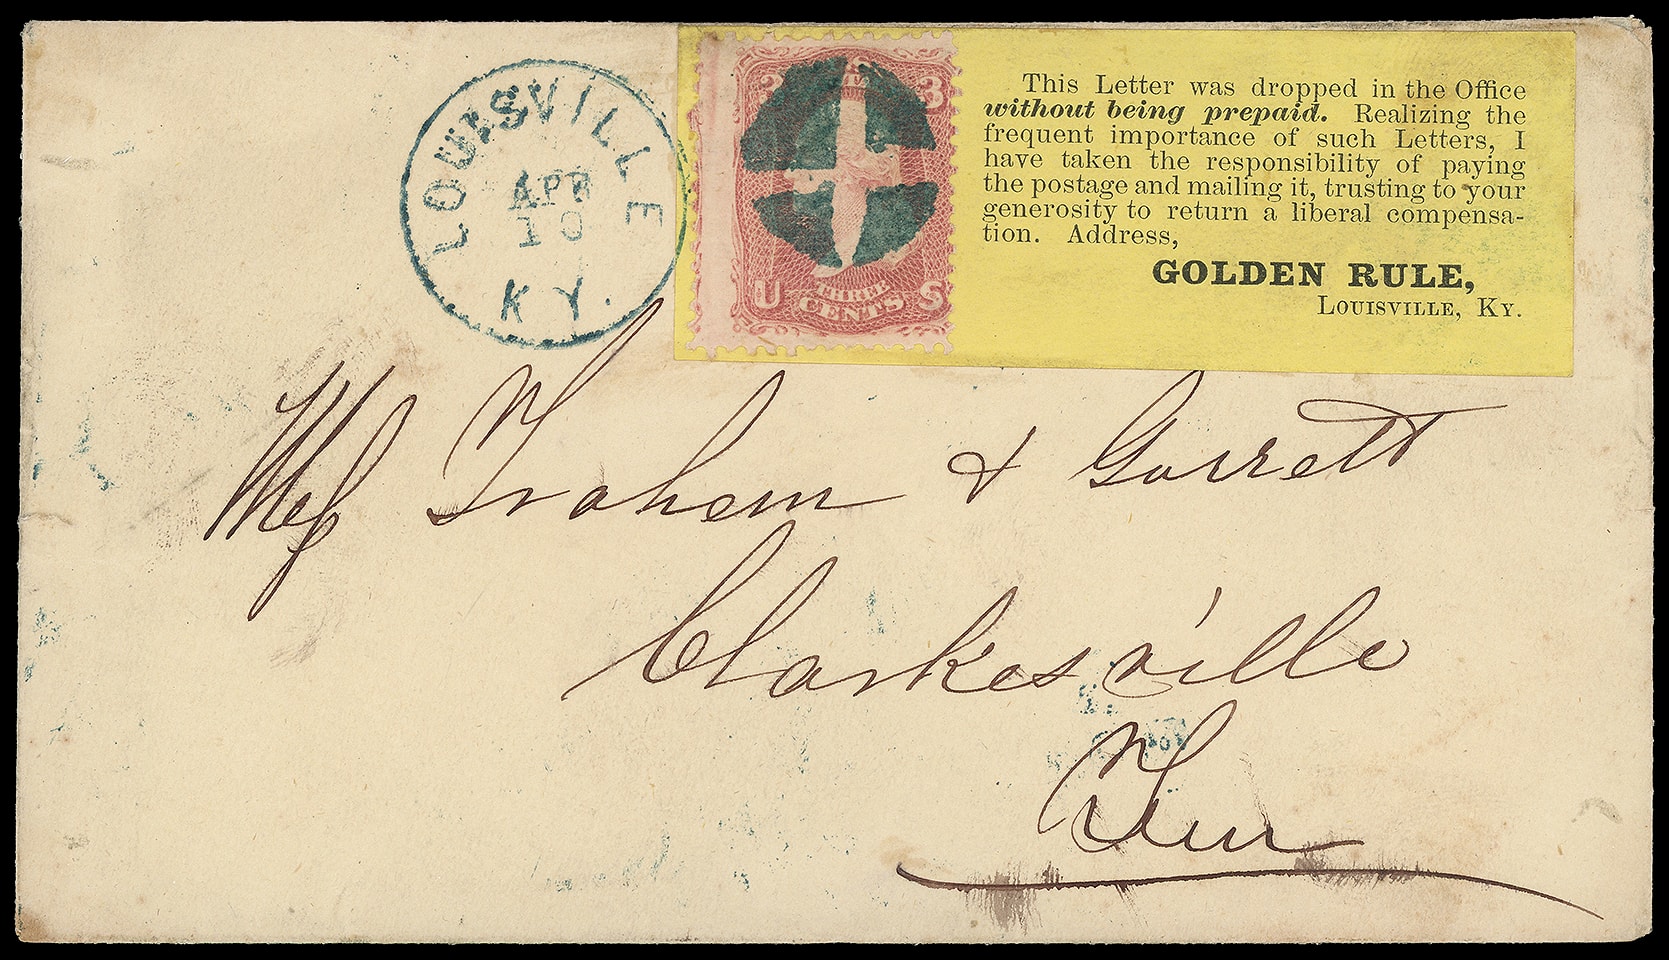 LOUISVILLE
APR
10
KY.
3
U THREE S
CENTS
This Letter was dropped in the Office
without being prepaid. Realizing the
frequent importance of such Letters, I
have taken the responsibility of paying
the postage and mailing it, trusting to your
generosity to return a liberal compensa-
tion. Address,
GOLDEN RULE,
LOUISVILLE, KY.
Graham & Garrett
Clarkesville
Tenn